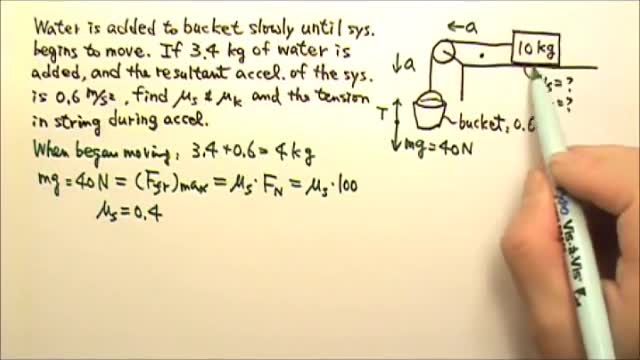 Water is added to bucket slowly until sys.
begins to move. If 3.4 kg of water is
added, and the resultant accel. of the sys.
is 0.6 m/s², find μs & μk and the tension
in string during accel.
When began moving: 3.4 + 0.6 = 4 kg
mg = 40N = (Ffr)max = μs · FN = μs · 100
μs = 0.4
← a
10 kg
↓ a
= ?
= ?
T
bucket: 0.6
mg = 40N
Vis-à-Vis